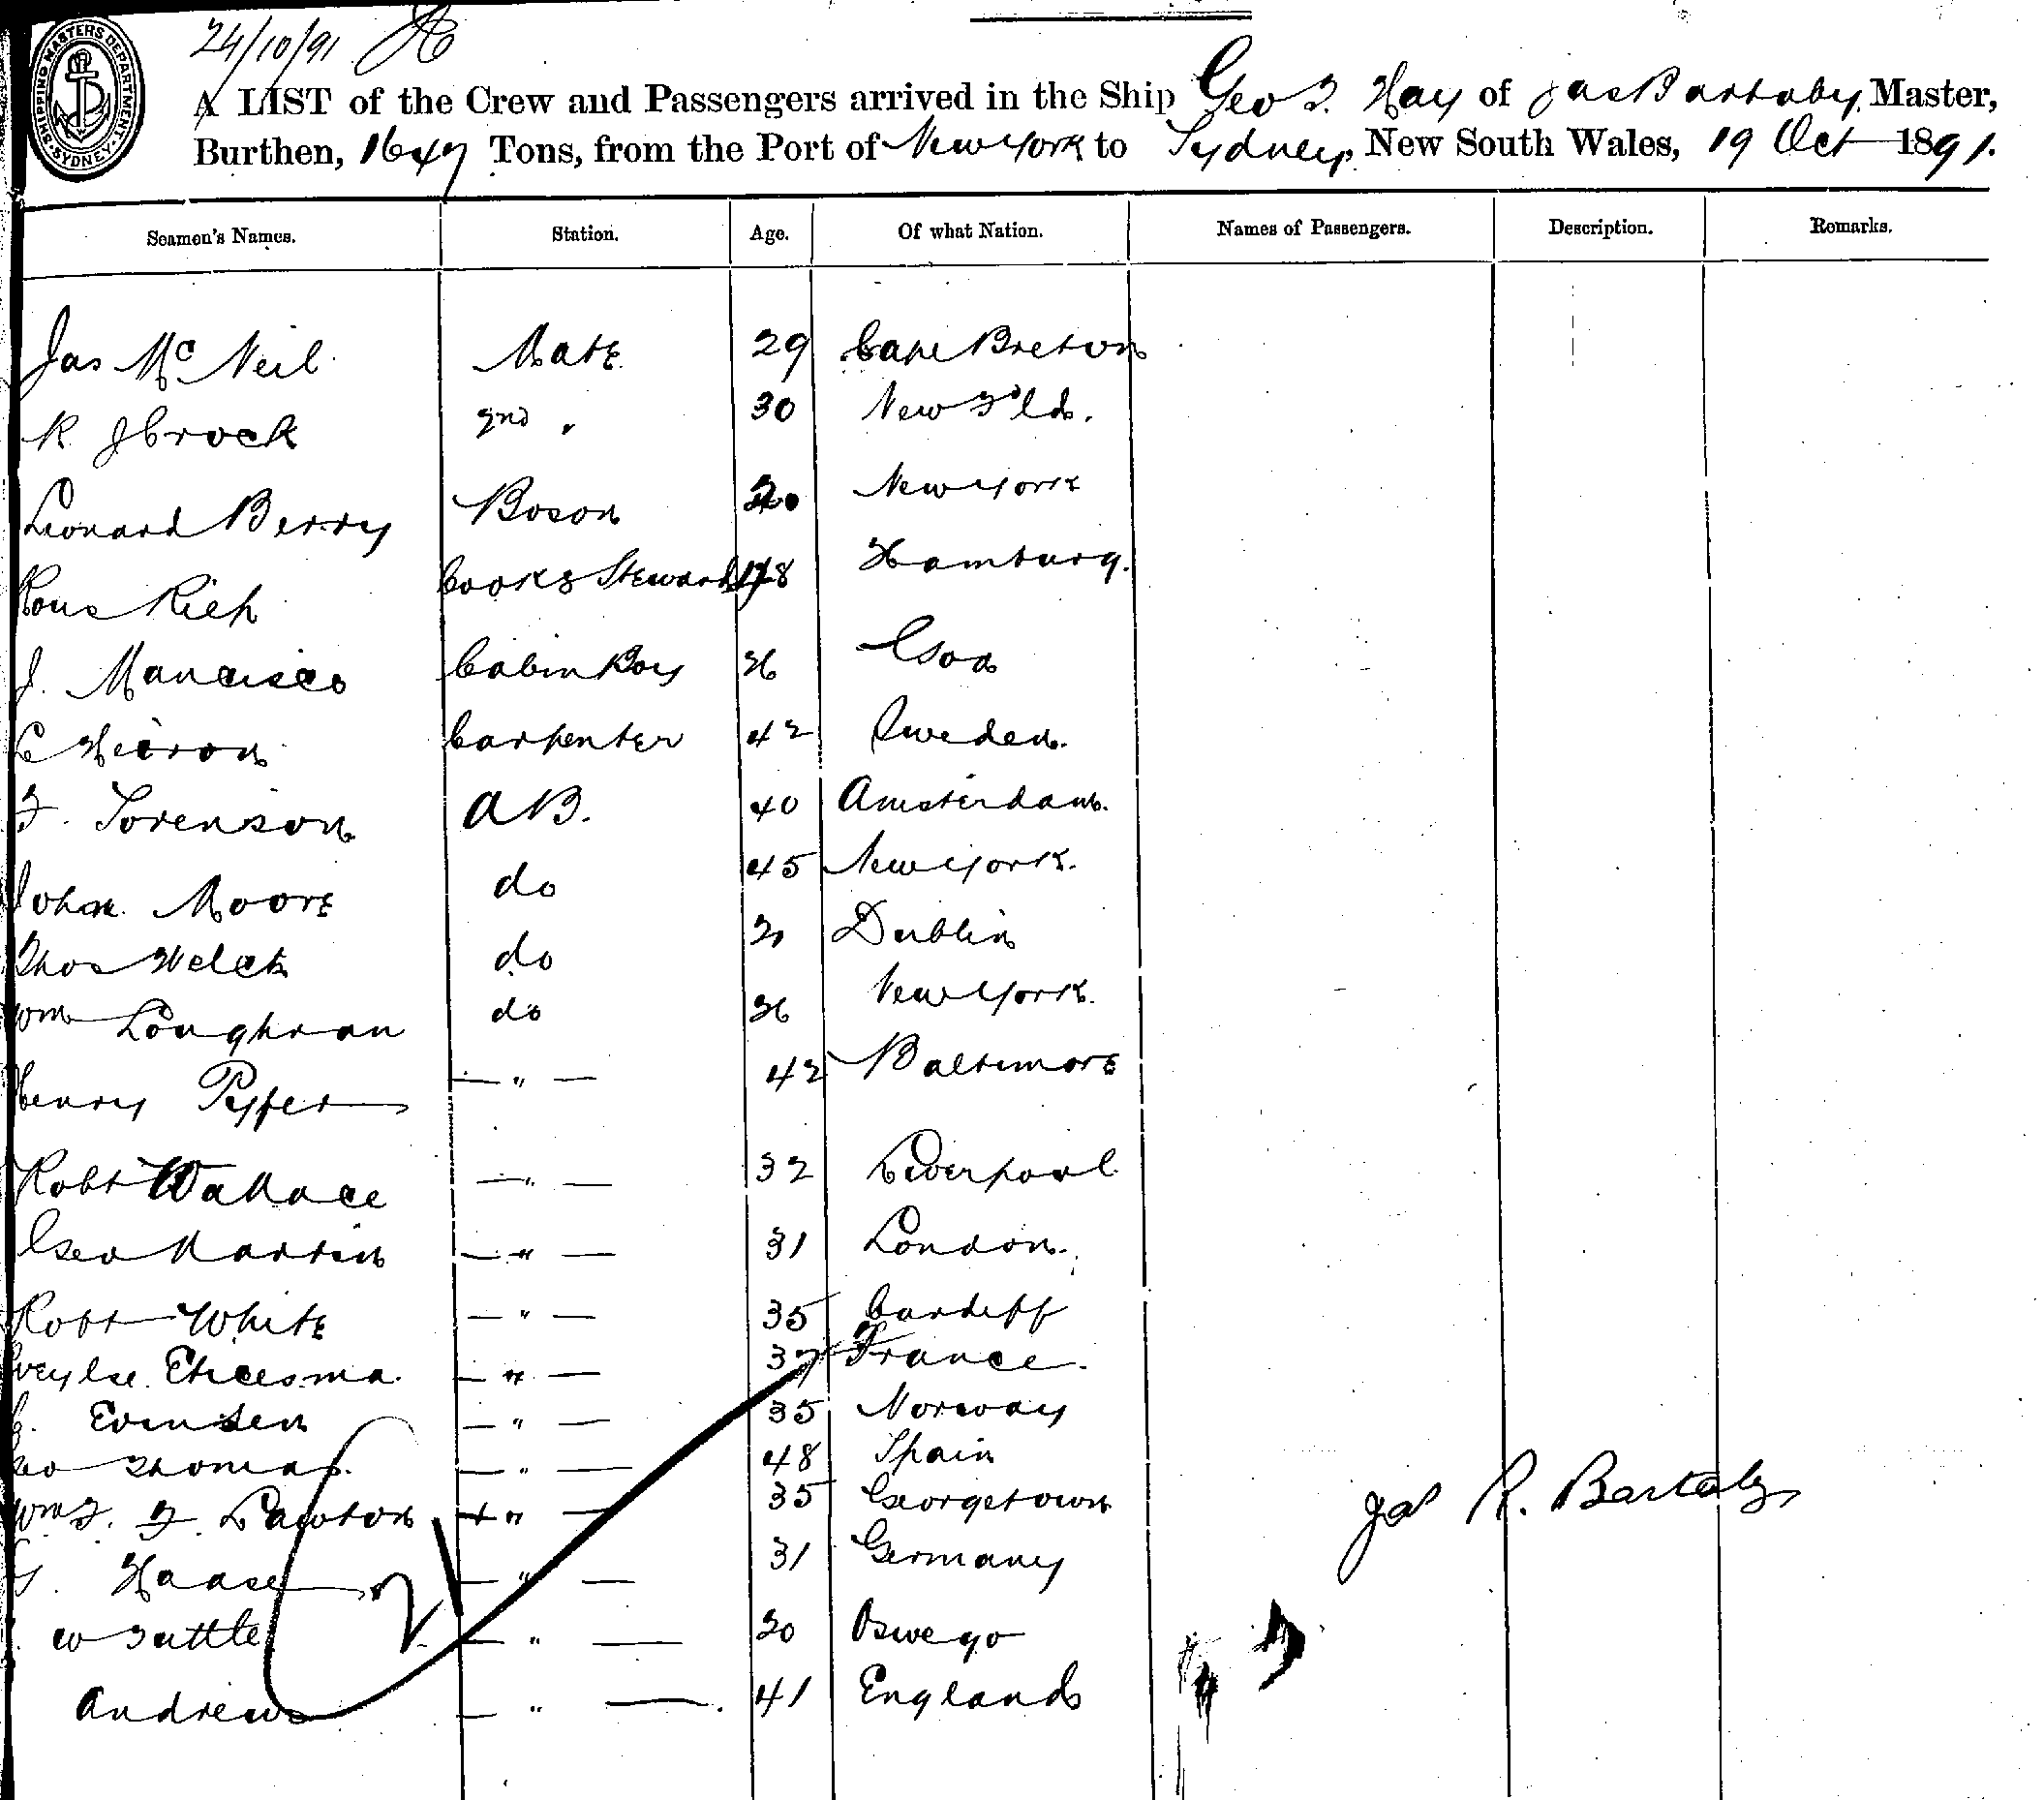 SHIPPING MASTERS DEPARTMENT SYDNEY
24/10/91
A LIST of the Crew and Passengers arrived in the Ship Geo T. Hay of Jas Bartaby, Master,
Burthen, 1647 Tons, from the Port of New York to Sydney, New South Wales, 19 Oct 1891.
Seamen's Names. Station. Age. Of what Nation. Names of Passengers. Description. Remarks.
Jas McNeil Mate 29 Cape Breton
R 2nd " 30 New F'ld.
Leonard Berry Boson New York
Rich Cook & Steward Hamburg.
J. Cabin Boy Goa
Carpenter 42 Sweden.
F. Sorenson AB. 40 Amsterdam.
John Moore do 45 New York.
Thos Welch do Dublin
Wm Loughran do New York.
Henry Pyfer — " — 42 Baltimore
Robt Wallace — " — 32 Liverpool
Geo Martin — " — 31 London.
Robt White — " — 35 Cardiff
— " — 37 France.
Evensen — " — 35 Norway
Geo Thomas. — " — 48 Spain
Lawton " — 35 Georgetown
Haase — " — 31 Germany
W Tuttle — " — 20 Oswego
Andrews — " — 41 England
Jas R. Bartaby